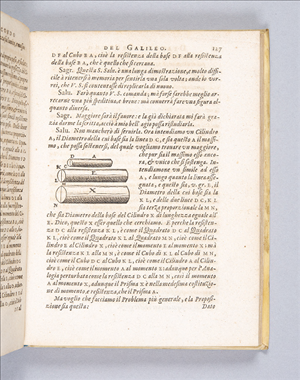 DEL GALILEO. 127
DF al Cubo BA, cioè la resistenza della base DF alla resistenza
della base BA, che è quello che si cercava.
Sagr. Questa S. Salu. è una lunga dimostrazione, e molto diffi-
cile a ritenersi à memoria per sentirla una sola volta; onde io vor-
rei, che V. S. si contentasse di replicarla di nuovo.
Salu. Farò quanto V. S. comanda; mà forse sarebbe meglio ar-
recarne una più speditiva, e breve: mà converrà fare una figura al-
quanto diversa.
Sagr. Maggiore sarà il favore: e la già dichiarata mi farà gra-
zia darmela scritta, acciò à mio bell'agio possa ristudiarla.
Salu. Non mancherò di servirla. Ora intendiamo un Cilindro
A, il Diametro della cui base sia la linea DC, e sia questo A il massi-
mo, che possa sostenersi, del quale vogliamo trovare un maggiore,
che pur sia il massimo esso anco-
ra, & unico che si sostenga. In-
tendiamone un simile ad esso
A, e lungo quanto la linea asse-
gnata, e questo sia, v. gr. E, il
Diametro della cui base sia la
KL, e delle due linee DC, KL
sia terza proporzionale la MN,
che sia Diametro della base del Cilindro X di lunghezza eguale all'
E. Dico, questo X esser quello che cerchiamo. E perche la resisten-
za DC alla resistenza KL, è come il Quadrato DC al Quadrato
KL, cioè come il Quadrato KL al Quadrato MN, cioè come il Ci-
lindro E al Cilindro X, cioè come il momento E al momento X: mà
la resistenza KL alla MN, è come il Cubo KL al Cubo di MN,
cioè come il Cubo DC al Cubo KL, cioè come il Cilindro A al Cilin-
dro E, cioè come il momento A al momento E: adunque per l'Ana-
logia perturbata come la resistenza DC alla MN, così il momento A
al momento X, adunque il Prisma X è nella medesima costituzio-
ne di momento, e resistenza, che il Prisma A.
Ma voglio che facciamo il Problema più generale, e la Proposi-
zione sia questa:
Dato
D A
C
K E
L
M X
N